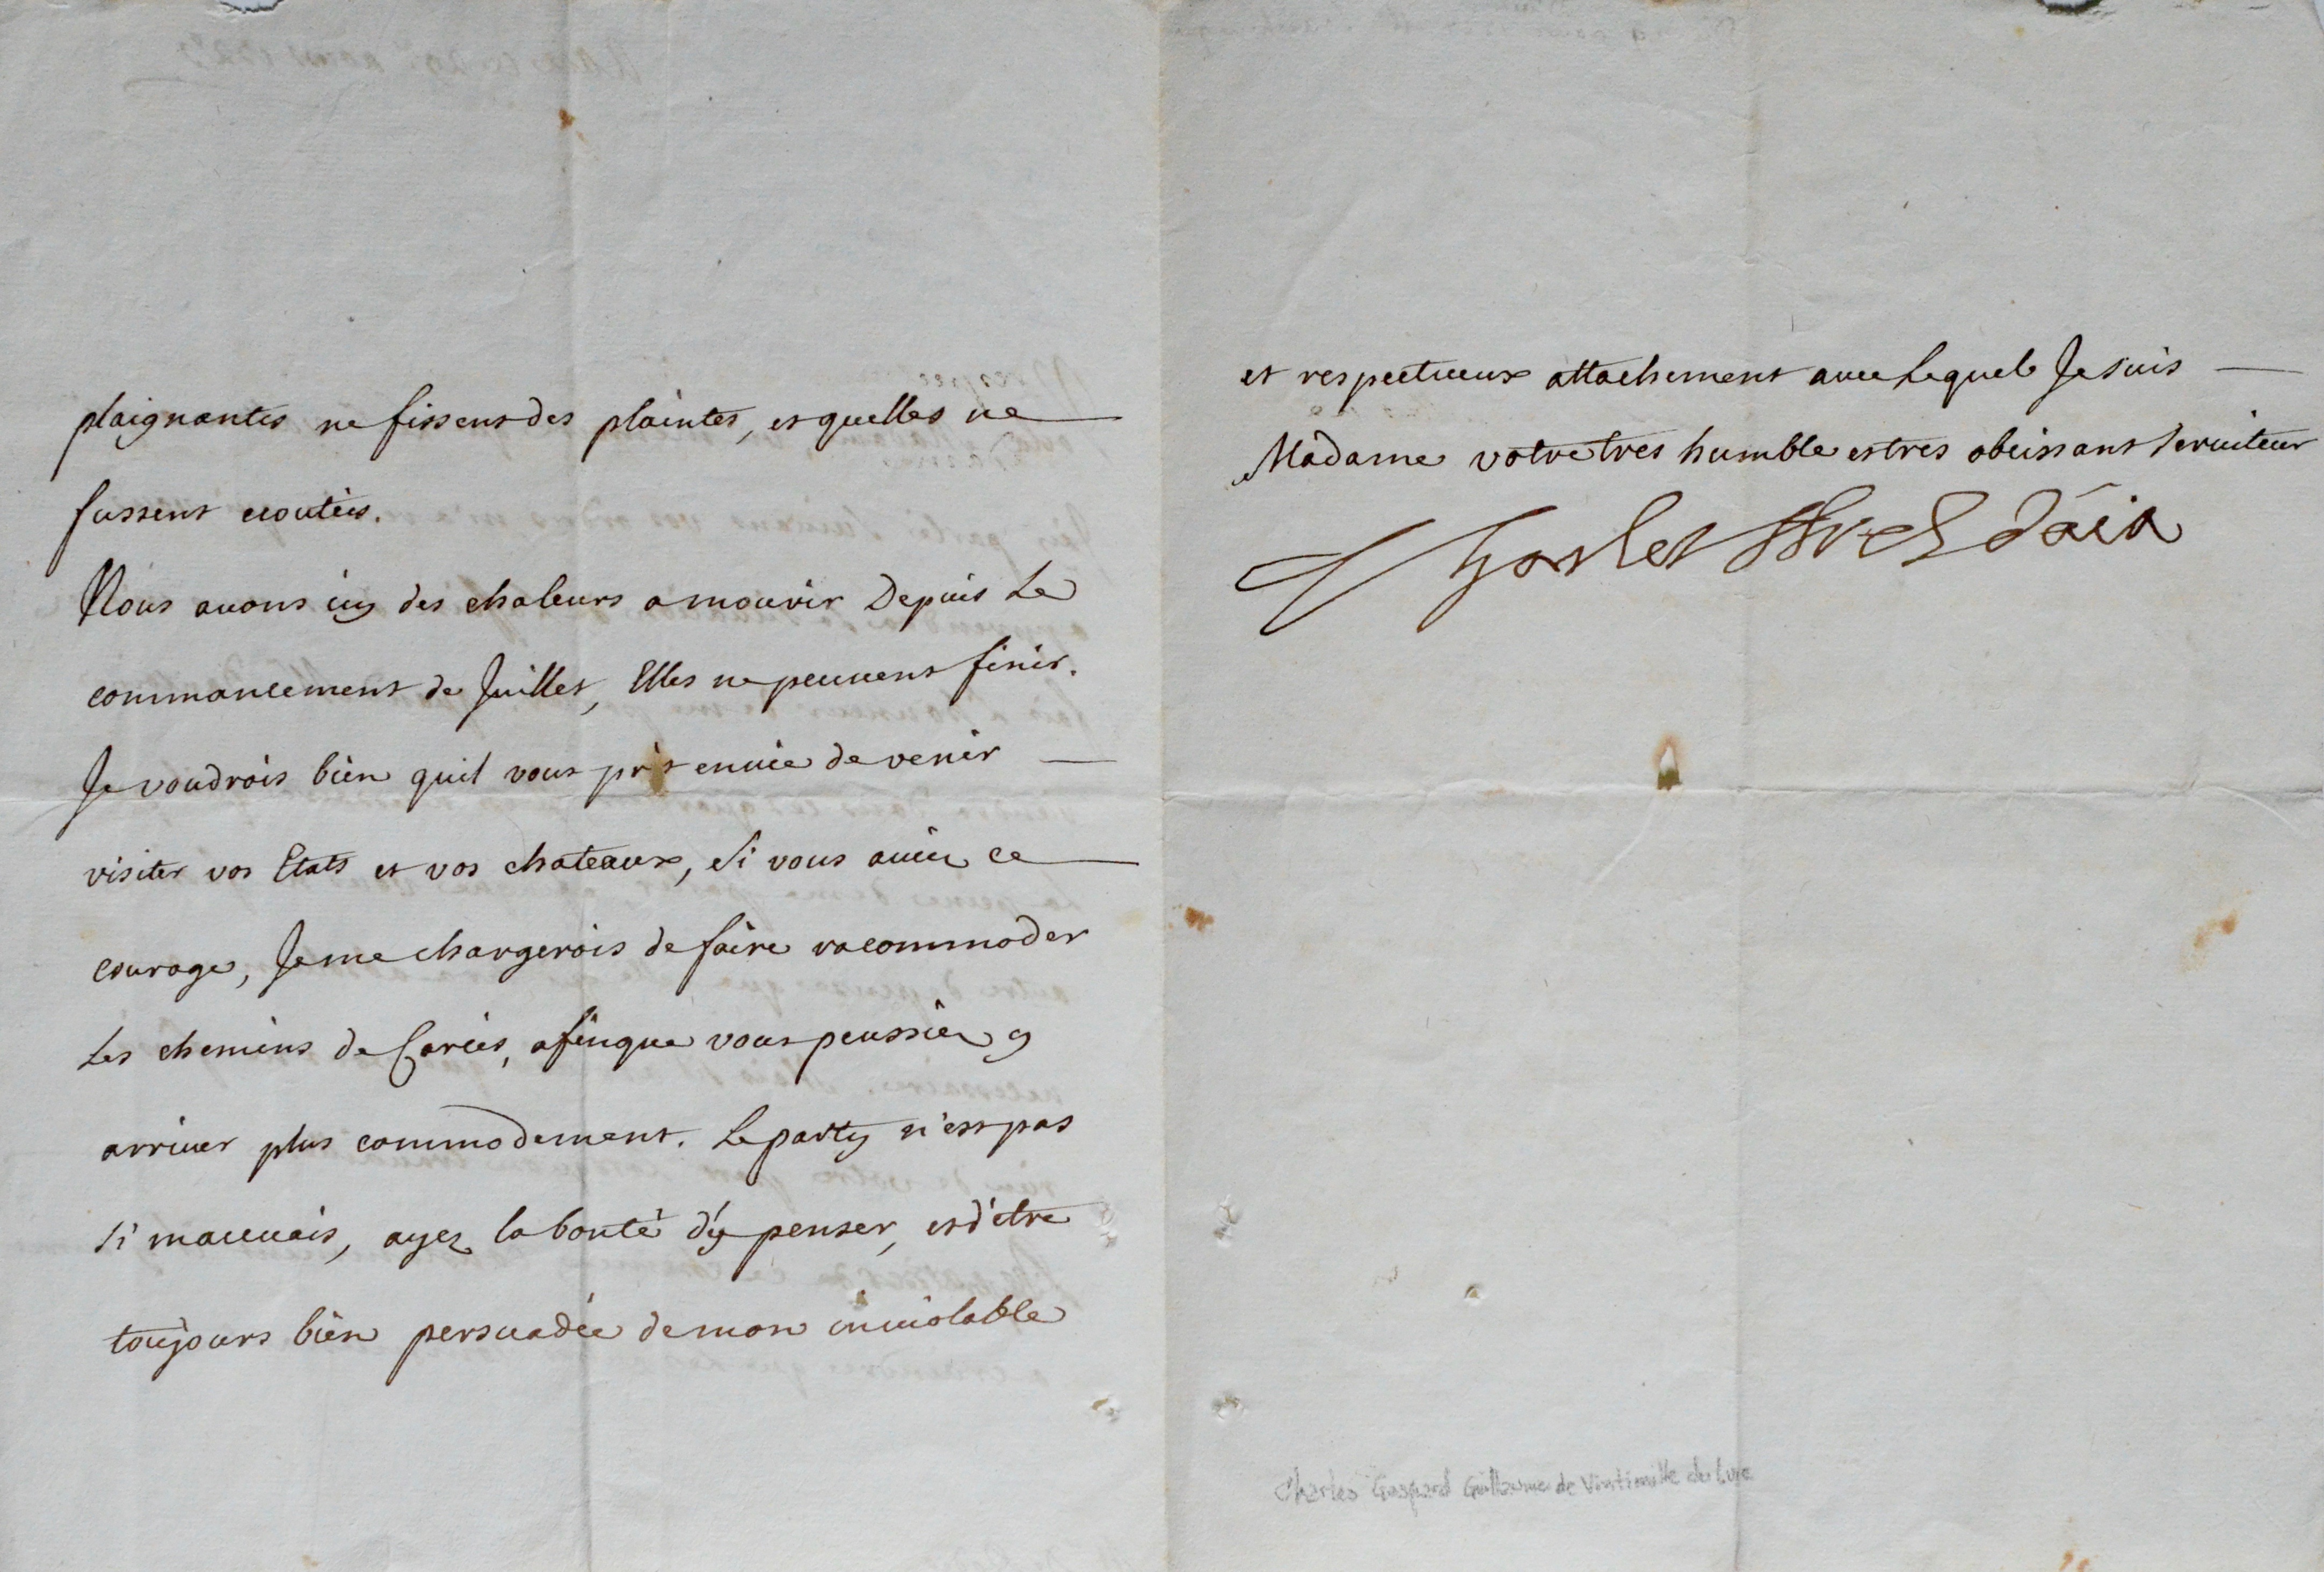 plaignantes ne fissent des plaintes, et quelles ne
fussent ecoutées.
Nous auons eu des chaleurs a mourir Depuis Le
commancement de Juillet, Elles ne peuuent finir.
Je voudrois bien quil vous prît enuie de venir
visiter vos Etats et vos chateaux, si vous auiez ce
courage, Je me chargerois de faire racommoder
Les chemins de Carcés, afin que vous peussiez y
arriuer plus commodement. Le party n'est pas
si mauuais, ayez la bonté d'y penser, et d'etre
toujours bien persuadée de mon inuiolable
et respectueux attachement auec Lequel Je suis
Madame votre tres humble et tres obeissant seruiteur
Charles Arch d'aix
Charles Gaspard Guillaume de Vintimille du Luc